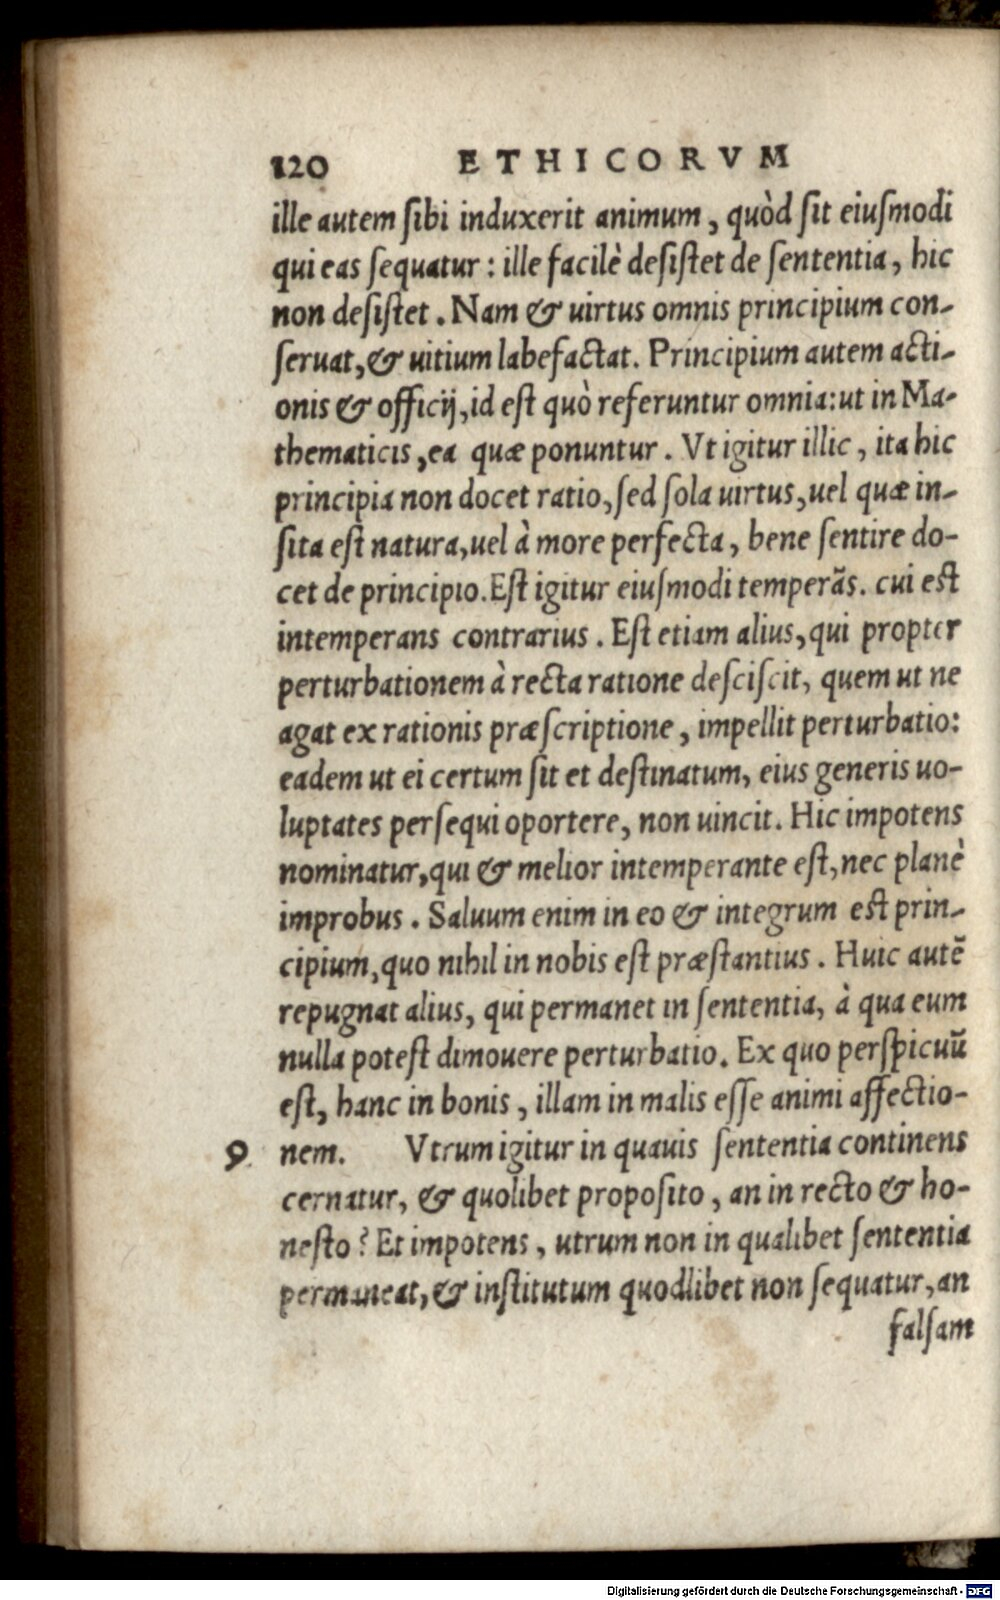 120 ETHICORVM
ille autem ſibi induxerit animum, quòd ſit eiuſmodi
qui eas ſequatur: ille facilè deſiſtet de ſententia, hic
non deſiſtet. Nam & uirtus omnis principium con-
ſeruat, & uitium labefactat. Principium autem acti-
onis & officij, id eſt quò referuntur omnia: ut in Ma-
thematicis, ea quæ ponuntur. Vt igitur illic, ita hic
principia non docet ratio, ſed ſola uirtus, uel quæ in-
ſita eſt natura, uel à more perfecta, bene ſentire do-
cet de principio. Eſt igitur eiuſmodi temperãs. cui eſt
intemperans contrarius. Eſt etiam alius, qui propter
perturbationem à recta ratione deſciſcit, quem ut ne
agat ex rationis præſcriptione, impellit perturbatio:
eadem ut ei certum ſit et deſtinatum, eius generis uo-
luptates perſequi oportere, non uincit. Hic impotens
nominatur, qui & melior intemperante eſt, nec planè
improbus. Saluum enim in eo & integrum eſt prin-
cipium, quo nihil in nobis eſt præſtantius. Huic autẽ
repugnat alius, qui permanet in ſententia, à qua eum
nulla poteſt dimouere perturbatio. Ex quo perſpicuũ
eſt, hanc in bonis, illam in malis eſſe animi affectio-
9. nem. Vtrum igitur in quauis ſententia continens
cernatur, & quolibet propoſito, an in recto & ho-
neſto? Et impotens, utrum non in qualibet ſententia
permaneat, & inſtitutum quodlibet non ſequatur, an
falſam
Digitalisierung gefördert durch die Deutsche Forschungsgemeinschaft - DFG